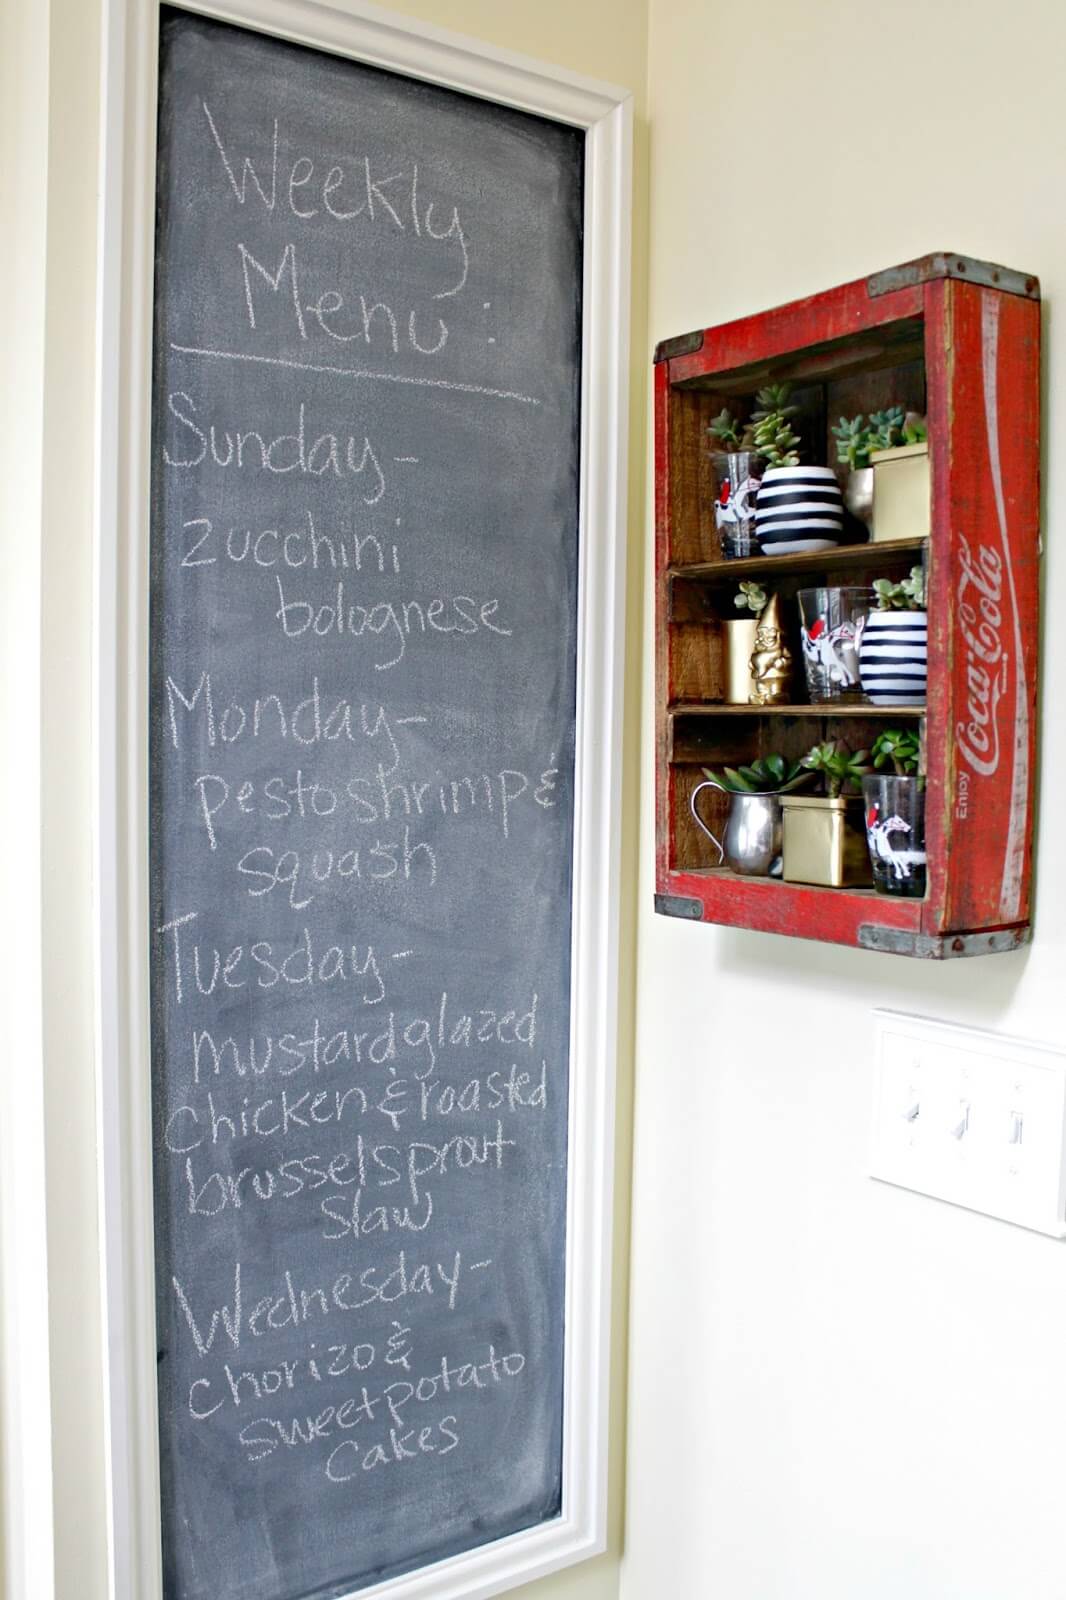 Weekly
Menu:
Sunday-
zucchini
bolognese
Monday-
pesto shrimp &
squash
Tuesday-
mustard glazed
chicken & roasted
brussel sprout
slaw
Wednesday-
chorizo &
sweet potato
cakes
Enjoy Coca-Cola